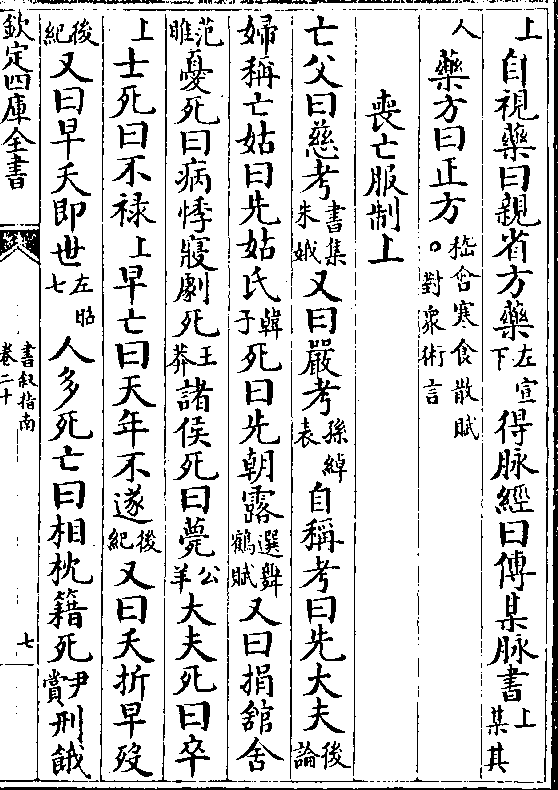 上自視藥曰親省方藥左宣下得脉經曰傳某脉書上某其
人藥方曰正方。嵇含寒食散賦對衆術言
喪亡服制上
亡父曰慈考書集朱娥又曰嚴考孫綽表自稱考曰先大夫後論
婦稱亡姑曰先姑氏韓子死曰先朝露選舞鶴賦又曰捐舘舍
范雎憂死曰病悸寢劇死王莽諸侯死曰薨公羊大夫死曰卒
上士死曰不禄上早亡曰天年不遂後紀又曰夭折早歿
後紀又曰早夭即世左昭七人多死亡曰相枕籍死尹賞刑餓
欽定四庫全書
書叙指南
卷二十
七